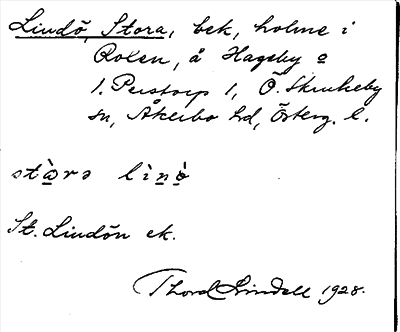 Lindö, Stora, bek, holme i
Roxen, å Hageby o
1. Perstorp 1, Ö. Skrukeby
sn, Åkerbo hd, Österg. l.
stɷ̀rə lìnö̀
St. Lindön ek.
Thord Lindell 1928.